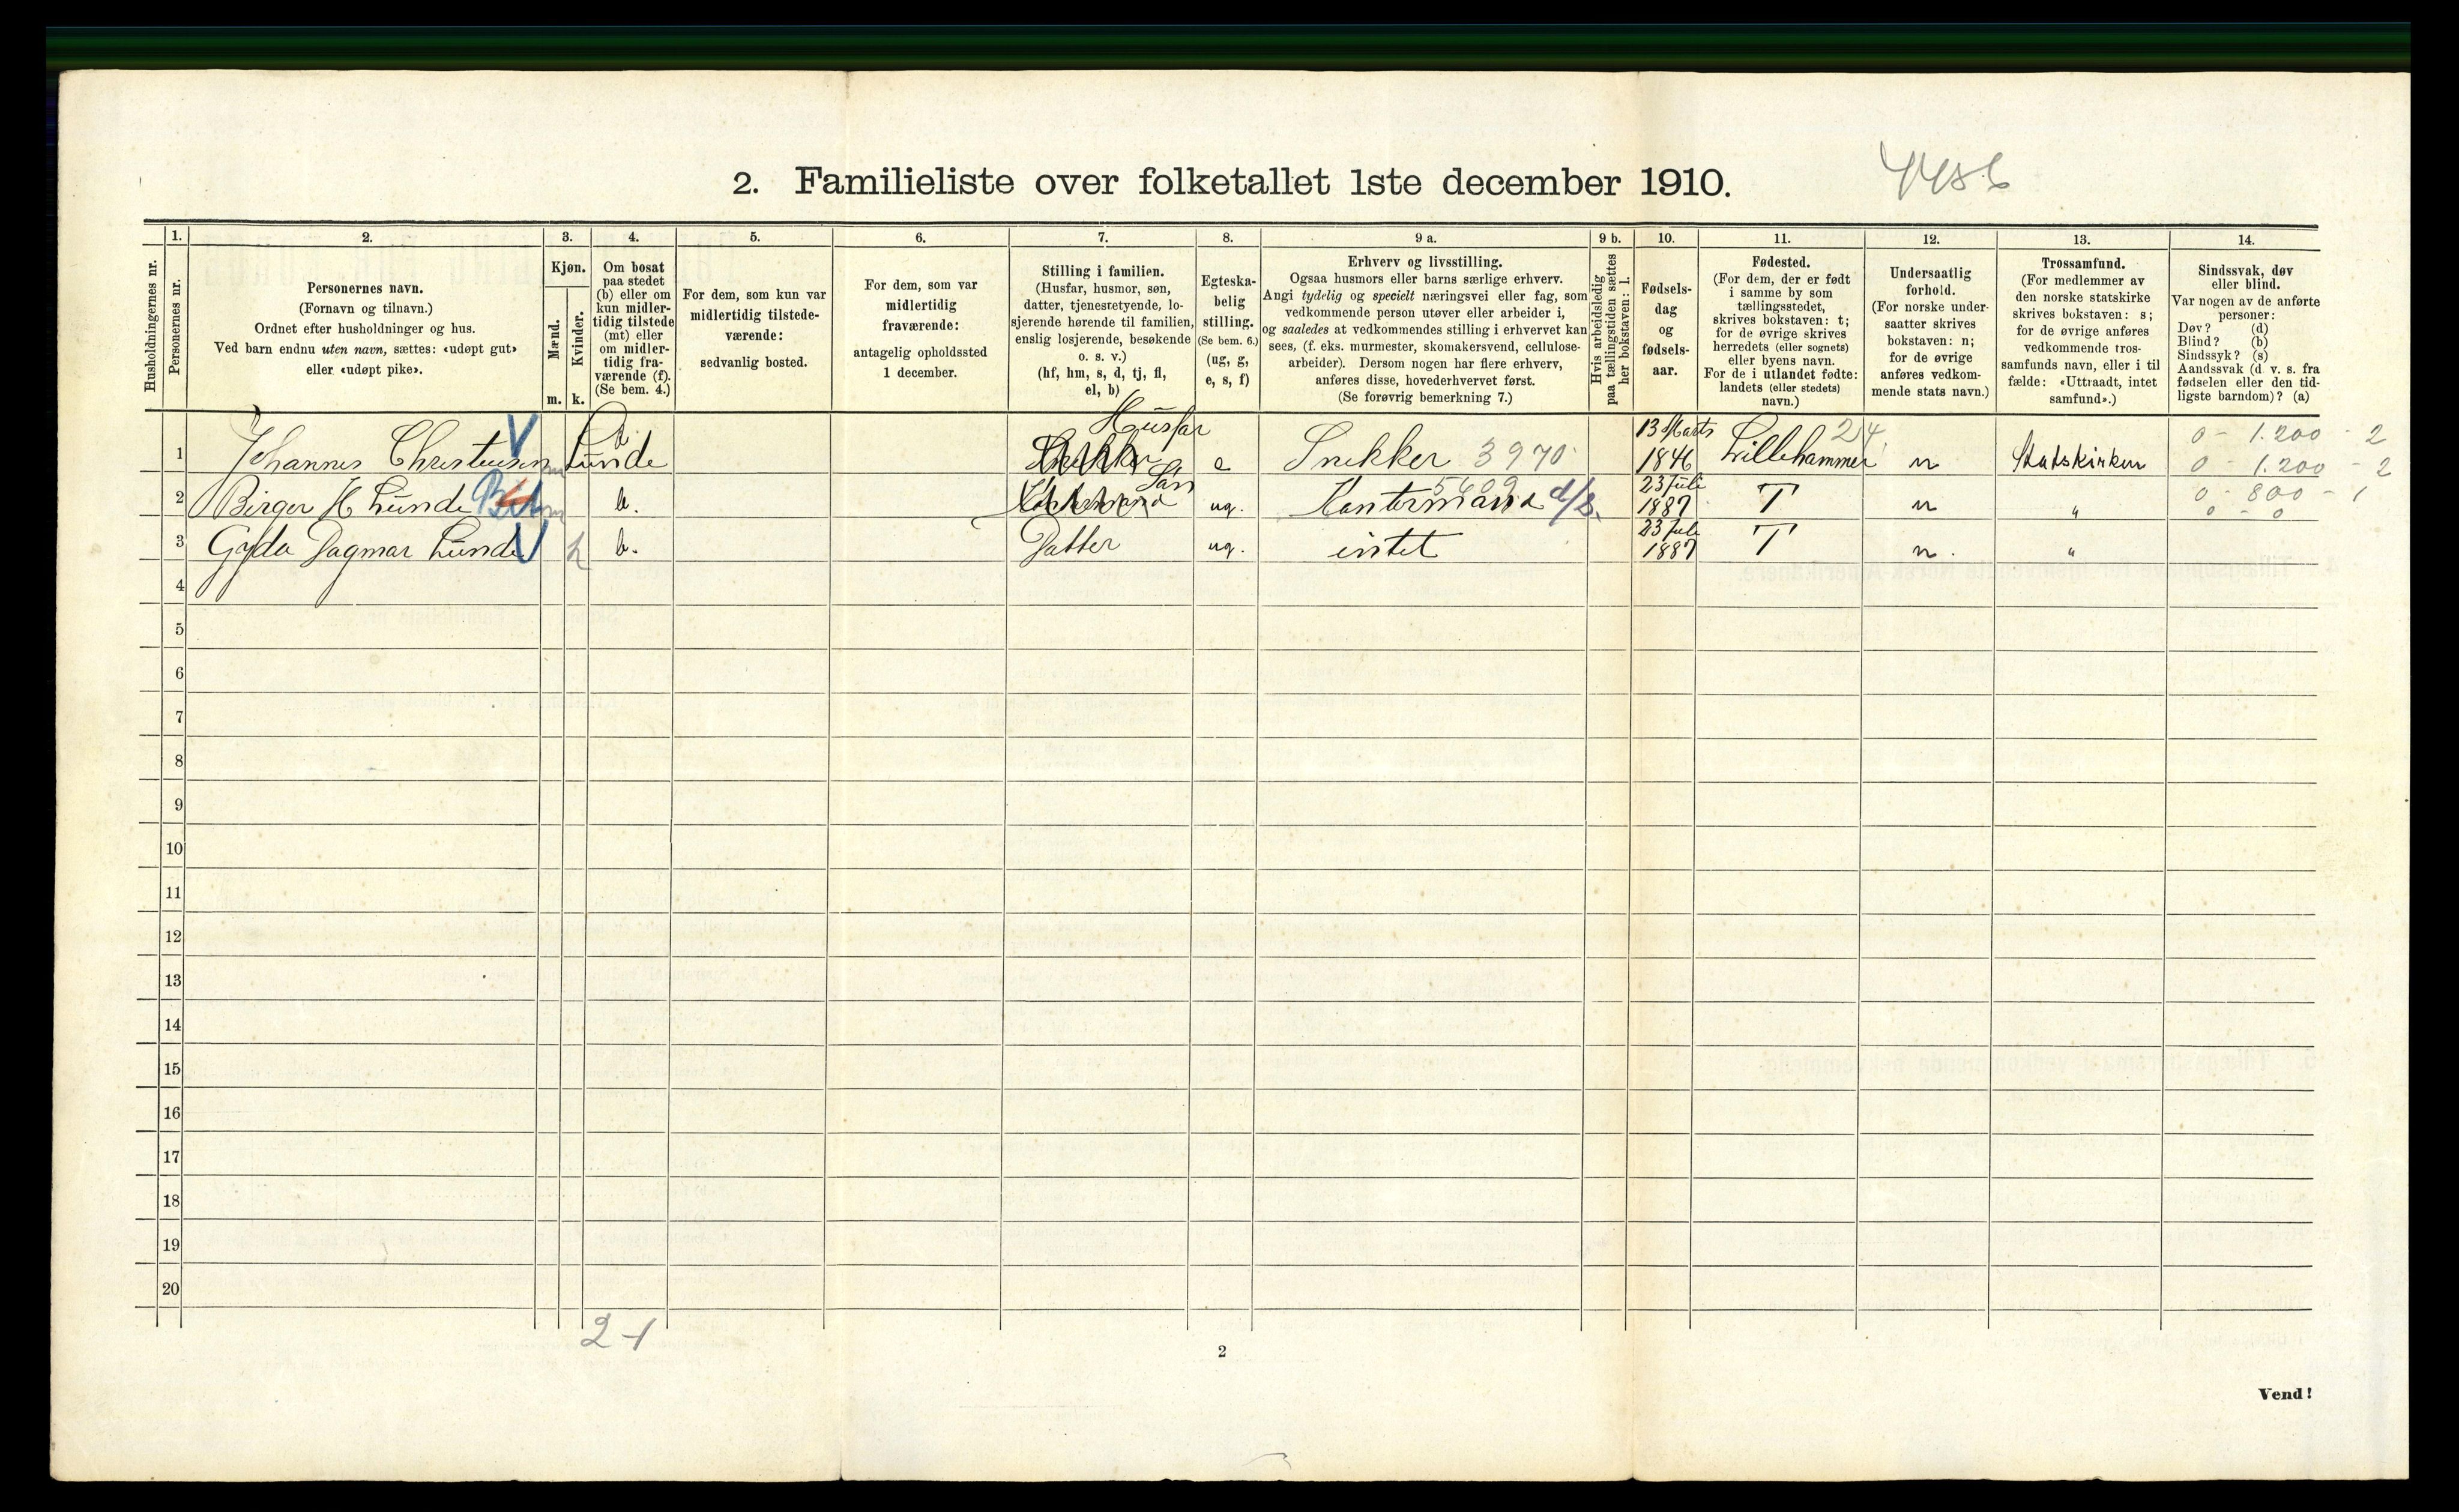 2. Familieliste over folketallet 1ste december 1910.
Husholdningernes nr.
1.
Personernes nr.
2.
Personernes navn.
(Fornavn og tilnavn.)
Ordnet efter husholdninger og hus.
Ved barn endnu uten navn, sættes: «udøpt gut»
eller «udøpt pike».
3.
Kjøn.
Mænd.
Kvinder.
m. k.
4.
Om bosat
paa stedet
(b) eller om
kun midler-
tidig tilstede
(mt) eller
om midler-
tidig fra-
værende (f).
(Se bem. 4.)
5.
For dem, som kun var
midlertidig tilstede-
værende:
sedvanlig bosted.
6.
For dem, som var
midlertidig
fraværende:
antagelig opholdssted
1 december.
7.
Stilling i familien.
(Husfar, husmor, søn,
datter, tjenestetyende, lo-
sjerende hørende til familien,
enslig losjerende, besøkende
o. s. v.)
(hf, hm, s, d, tj, fl,
el, b)
8.
Egteska-
belig
stilling.
(Se bem. 6.)
(ug, g,
e, s, f)
9 a.
Erhverv og livsstilling.
Ogsaa husmors eller barns særlige erhverv.
Angi tydelig og specielt næringsvei eller fag, som
vedkommende person utøver eller arbeider i,
og saaledes at vedkommendes stilling i erhvervet kan
sees, (f. eks. murmester, skomakersvend, cellulose-
arbeider). Dersom nogen har flere erhverv,
anføres disse, hovederhvervet først.
(Se forøvrig bemerkning 7.)
9 b.
Hvis arbeidsledig
paa tællingstiden sættes
her bokstaven: l.
10.
Fødsels-
dag
og
fødsels-
aar.
11.
Fødested.
(For dem, der er født
i samme by som
tællingsstedet,
skrives bokstaven: t;
for de øvrige skrives
herredets (eller sognets)
eller byens navn.
For de i utlandet fødte:
landets (eller stedets)
navn.)
12.
Undersaatlig
forhold.
(For norske under-
saatter skrives
bokstaven: n;
for de øvrige
anføres vedkom-
mende stats navn.)
13.
Trossamfund.
(For medlemmer av
den norske statskirke
skrives bokstaven: s;
for de øvrige anføres
vedkommende tros-
samfunds navn, eller i til
fælde: «Uttraadt, intet
samfund».)
14.
Sindssvak, døv
eller blind.
Var nogen av de anførte
personer:
Døv? (d)
Blind? (b)
Sindssyk? (s)
Aandssvak (d. v. s. fra
fødselen eller den tid-
ligste barndom)? (a)
1 Johannes Christensen Lunde m b Husfar e Snekker 3970 13 Marts 1846 Lillehammer 24 n Statskirken 0 - 1.200 - 2
0 - 1.200 - 2
2 Birger H Lunde m b. Søn ug. Kontormand 5609 23 Juli 1887 T n " 0 - 800 - 1
0 - 0
3 Gyda Dagmar Lunde k b. Datter ug. intet 23 Juli 1887 T n. "
4
5
6
7
8
9
10
11
12
13
14
15
16
17
18
19
20
2-1
2
Vend!